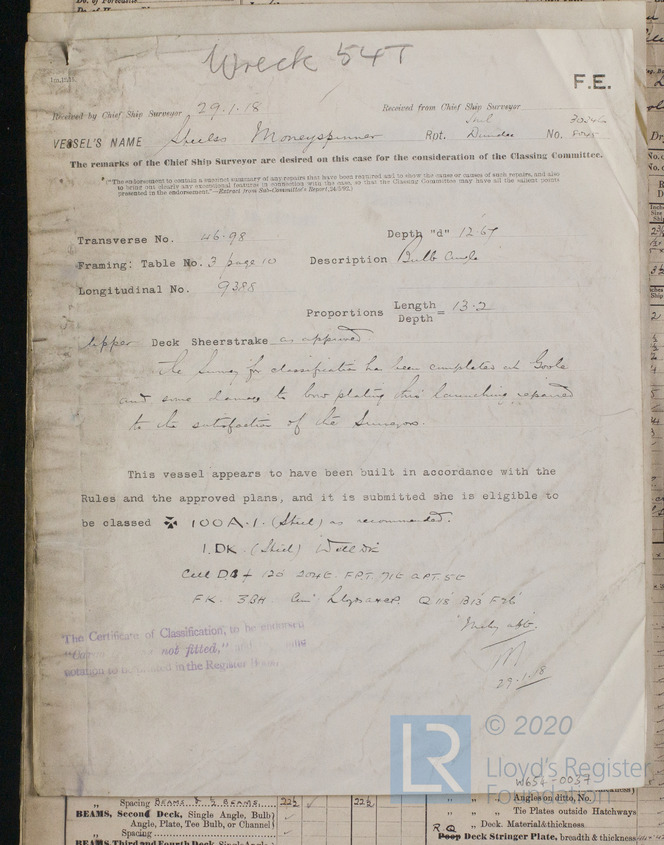 Wreck 54T
F.E.
Received by Chief Ship Surveyor 29.1.18
Received from Chief Ship Surveyor
Hull 30246
VESSEL'S NAME Moneyspinner Rpt. Dundee No. Four
The remarks of the Chief Ship Surveyor are desired on this case for the consideration of the Classing Committee.
*("The endorsement to contain a succinct summary of any repairs that have been required and to show the cause or causes of such repairs, and also
to bring out clearly any exceptional features in connection with the case, so that the Classing Committee may have all the salient points
presented in the endorsement."—Extract from Sub-Committee's Report,
Transverse No. 46.98
Depth "d" 12.67
Framing: Table No. 3 page 10 Description Bulb Angle
Longitudinal No. 9388
Proportions Length
Depth = 13.2
Upper Deck Sheerstrake as approved
The Survey for classification has been completed at Goole
and some damage to bow plating this launching repaired
to the satisfaction of the Surveyors.
This vessel appears to have been built in accordance with the
Rules and the approved plans, and it is submitted she is eligible to
be classed ✠ 100A.1. (Steel) as recommended.
1.DK. (Steel) Well DK
Cell DB 120' 204t. F.P.T. 71t A.P.T. 5t
F.K. 3BH. Lloyds A&CP. Q 115' B13' F26'
29.1.18
The Certificate of Classification, to be endorsed
not fitted,"
notation to be in the Register Book.
© 2020
LR
Lloyd's Register
Foundation
W654-0037
" Spacing BEAMS 22½ 22½
BEAMS, Second Deck, Single Angle, Bulb
Angle, Plate, Tee Bulb, or Channel
" Spacing
BEAMS, Third and Fourth Deck, Single Angle
" " Angles on ditto, No.
" " Tie Plates outside Hatchways
" Deck. Material & thickness
R Q
Poop Deck Stringer Plate, breadth & thickness